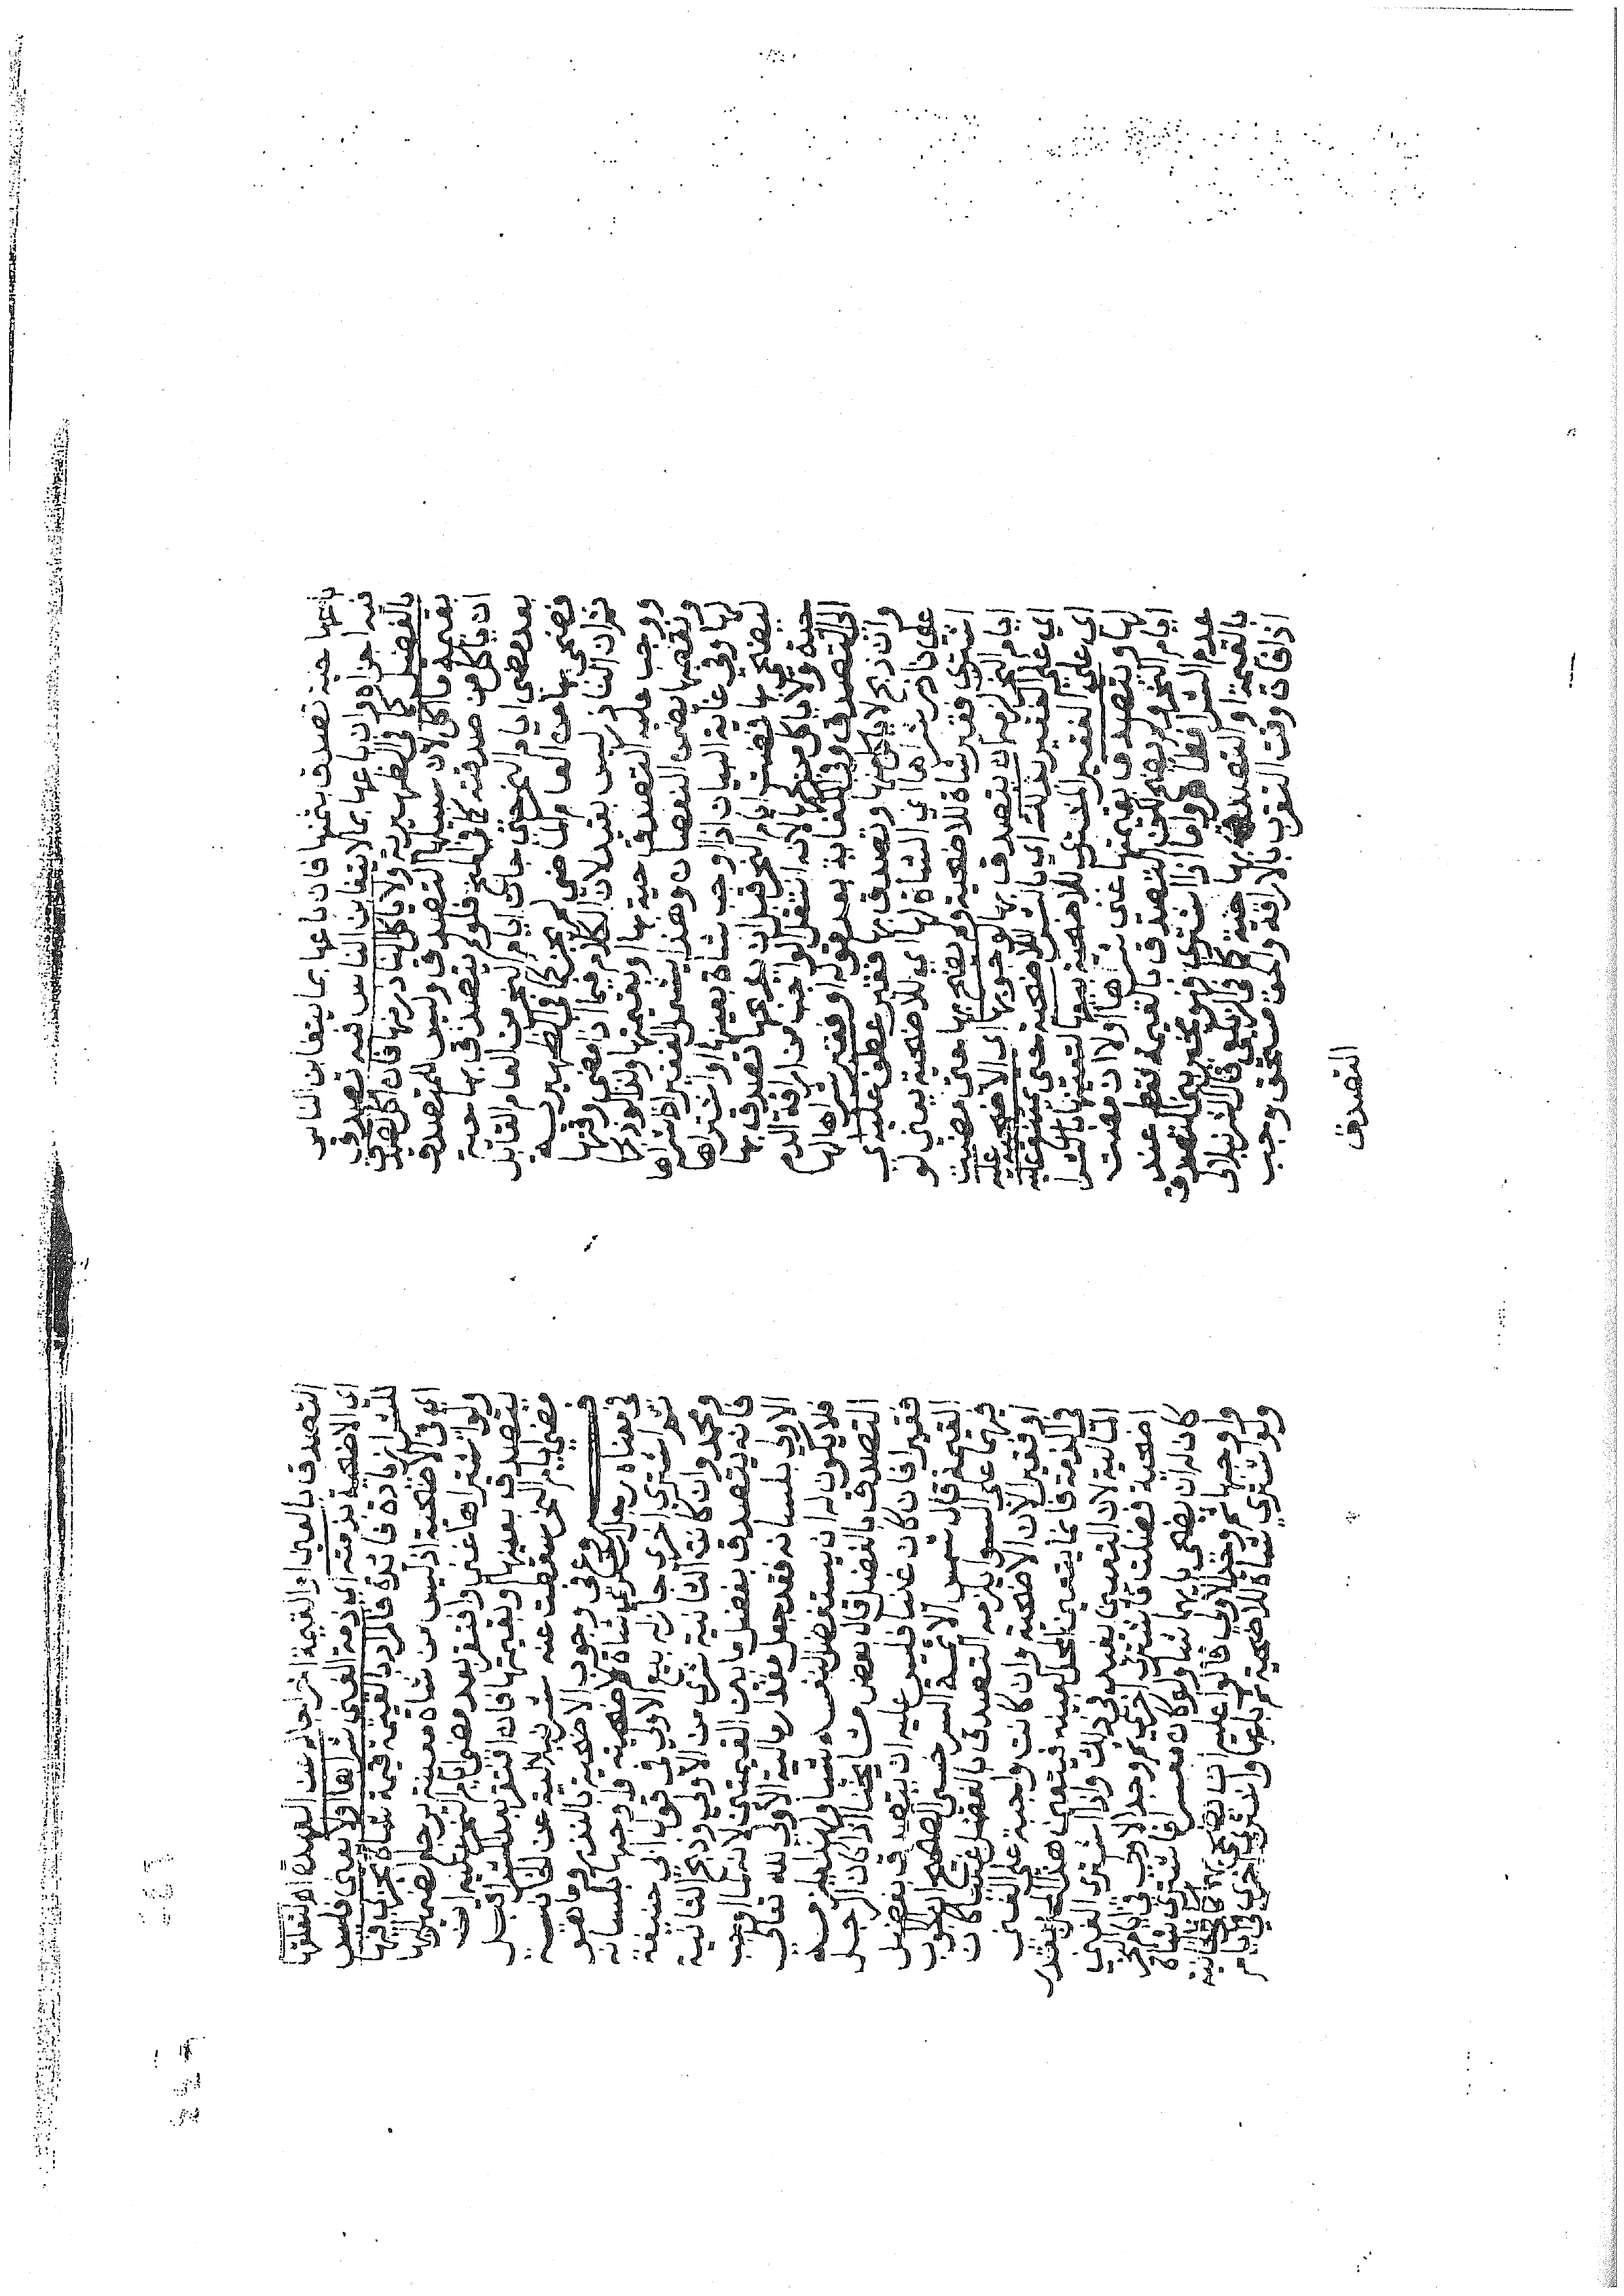 باعها حية تصدق بثمنها فان باعها بما يتغابن الناس
فيه اجزاه وان باعها بما لا يتغابن الناس فيه تصدق
بالفضل كما في الظهيرية ولا ياكل الناذر منها فان اكل تصدق
بقيمة ما اكل لان سبيلها التصدق وليس للمتصدق
ان ياكل من صدقته كما في فلو لم يتصدق بها حية
بعد مضي ايام النحر حتى جات ايام النحر من العام القابل
فضحى بها عن العام الماضي لم يجز كما في الظهيرية
ثم ان الناذر ليس بقيد لان الكلام فيما اذا مضى وقتها
ووجب عليه التصدق حية بها او بقيمتها ولذا لو ذبحها
ونقصها يضمن النقصان وهذا يشمل الفقير اذا شراها
لها وفي غاية البيان اذا اوجب شاة بعينها او اشتراها
ليضحي بها فمضت ايام النحر قبل ان يذبحها تصدق بها
حية ولا ياكل من لحمها لانه انتقل الواجب من اراقة الدم
الى التصدق وفي بعد قوله او فقير شراها لها
وان ذبح لا ياكل منها وتصدق بها فقير عطف عليه اي
على ناذر شراها اي الشاة لها اي للاضحية يعني لو
اشترى فقير شاة للاضحية ولم يضح بها حتى مضت
ايام النحر لزمه ان يتصدق بها لوجوبها اي الاضحية عليه
اي على الفقير بذلك اي بالشرا للاضحية حتى يمتنع عليه
اي على الفقير المشتري للاضحية بيعها لتعينها بالشرا
لها وتصدق بقيمتها غني شراها اولا ان مضت
ايام النحر ولم يضح لكن التصدق بالقيمة فقط عند
عدم الشرا فظاهر واما اذا اشترى فهو مخير بين التصدق
بالقيمة او التصدق بها حية كما في الزيلعي قال الشرنبلالي
اذا فات وقت التقرب بالاراقة والحق مستحق وجب
التصدق
التصدق بالعين او القيمة اخراجا له عن العهدة لتعلقها
اي الاضحية بذمته اي ذمة الغني شراها اولا يعني فليس
للشرا زيادة فائدة فالمراد بالقيمة قيمة شاة يجزي فيها
اي في الاضحية اذ ليس من شاة معينة يرجع لضميرها
ولو اشتراها غني وافتقر بعد مضي ايام النحر عليه ان
يتصدق بعينها او بقيمتها فان افتقر بعد الشرا قبل
مضي ايام النحر سقطت عنه شرنبلالية عن الخانية
فروع في وجوب الاضحية بالنذر وما هو
في معناه رجل اشترى شاة لاضحية واوجبها بلسانه
ثم اشترى اخرى جاز له بيع الاولى في قول ابي حنيفة
ومحمد وان كانت الثانية شرا من الاولى وذبح الثانية
فانه يتصدق بفضل ما بين القيمتين لانه لما اوجب
الاولى بلسانه فقد جعل مقدار مالية الاولى لله تعالى
فلا يكون له ان يستفضل لنفسه شيا ولهذا يلزمه
التصدق بالفضل قال بعض مشايخنا اذا كان الرجل
فقيرا فان كان غنيا فليس عليه ان يتصدق بفضل
القيمة قال شمس الائمة السرخسي الصحيح ان الجواب
فيهما على السوا يلزمه التصدق بالفضل غنيا كان
او فقيرا لان الاضحية وان كانت واجبة على الغني
في الذمة فانما يتعين المحل بعينه فتعين هذا المحل بقدر
المالية لان التعيين يفيد في ذلك واذا اشترى الغني
اضحية فضلت فاشترى اخرى ثم وجد الاولى في ايام النحر
كان له ان يضحي بايهما شا ولو كان معسرا فاشترى شاة
واوجبها ثم وجد الاولى قالوا عليه ان يضحي بهما
ولو اشترى شاة للاضحية ثم باعها واشترى اخرى في ايام